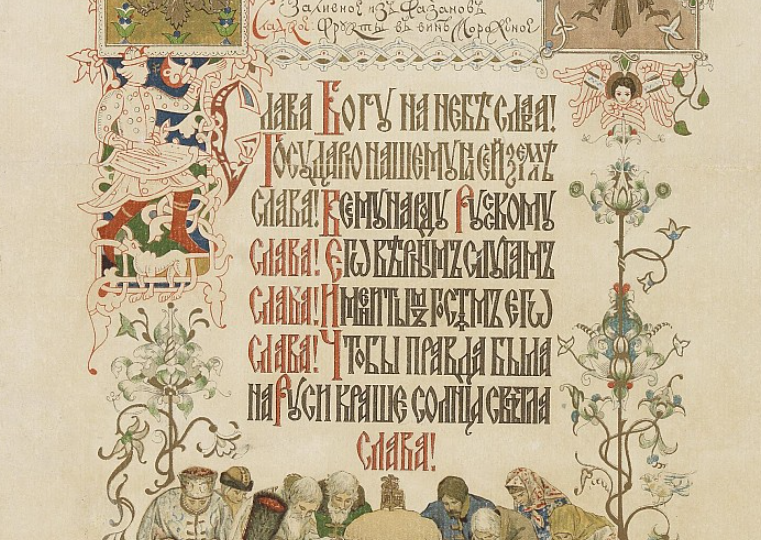 Заливное изъ Фазановъ
Сладкое Фрукты въ винѣ Мороженое
СЛАВА БОГУ НА НЕБѢ СЛАВА!
ГОСУДАРЮ НАШЕМУ НА СЕЙ ЗЕМЛѢ
СЛАВА! ВСЕМУ НАРОДУ РУСКОМУ
СЛАВА! ЕГѠ ВѢРНЫМЪ СЛУГАМЪ
СЛАВА! ИМЕНИТЫМЪ ГОСТЯМЪ ЕГѠ
СЛАВА! ЧТОБЫ ПРАВДА БЫЛА
НА РУСИ КРАШЕ СОЛНЦА СВѢТЛА
СЛАВА!